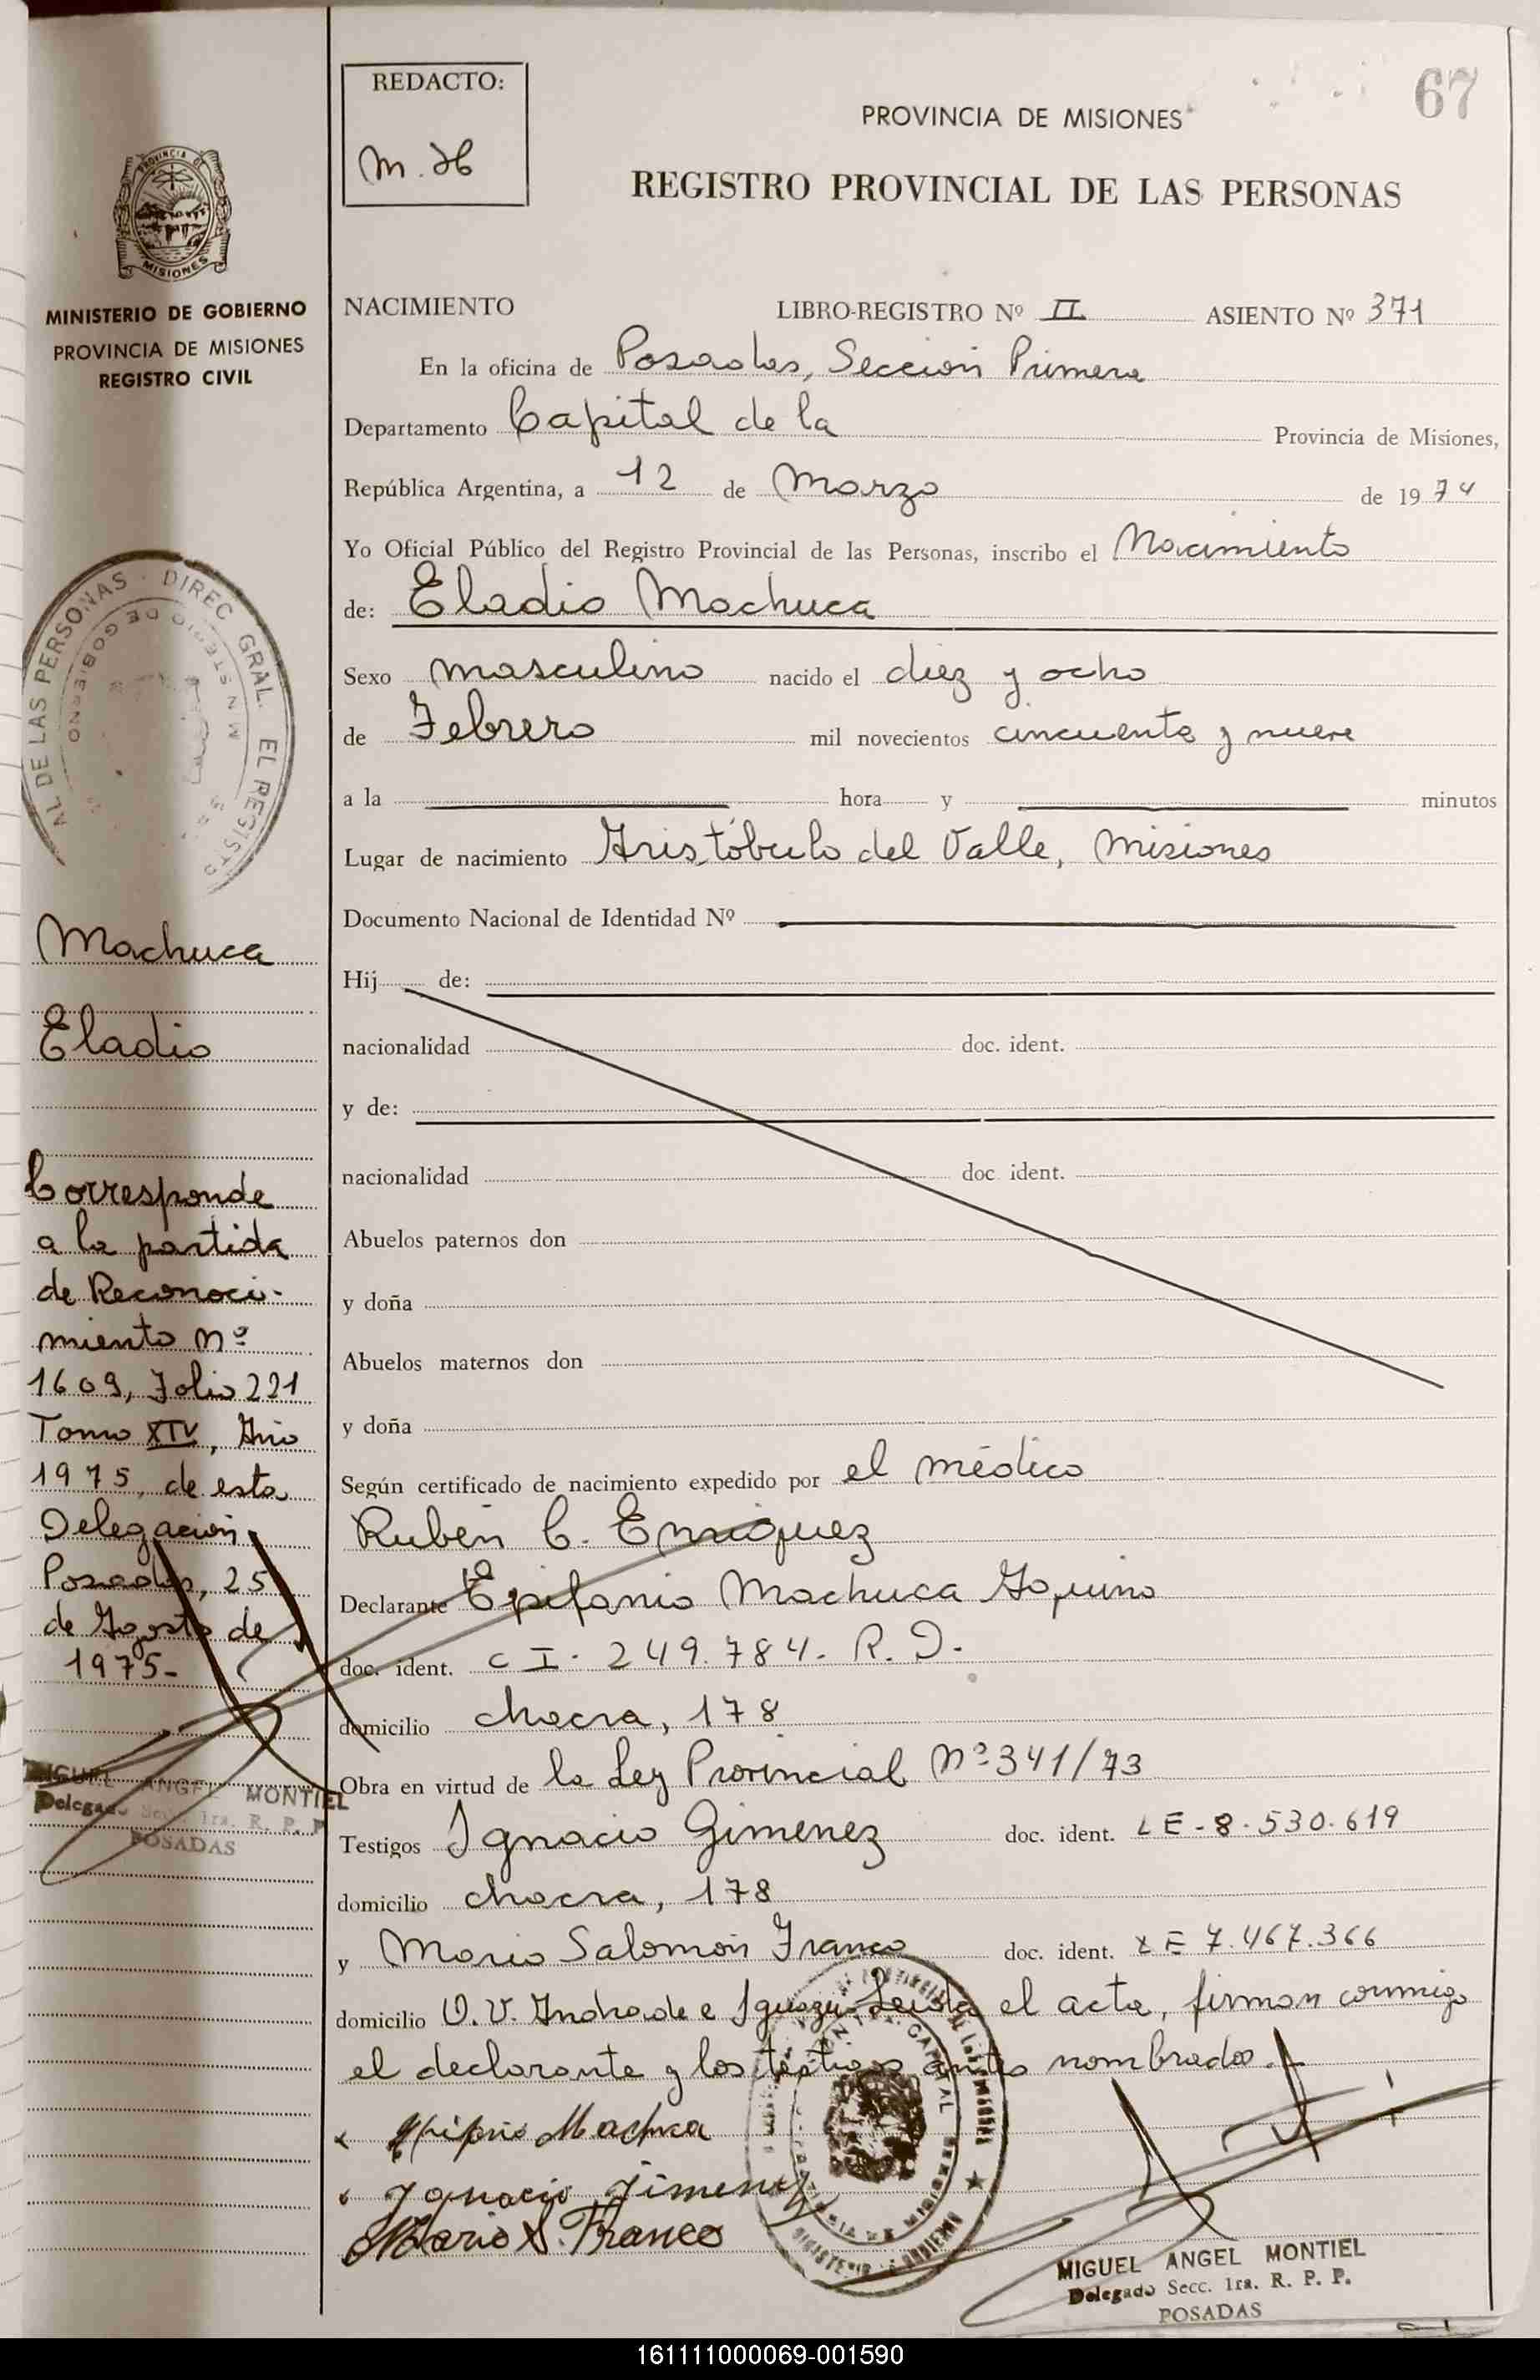 REDACTO:
M. H
67
PROVINCIA DE MISIONES
REGISTRO PROVINCIAL DE LAS PERSONAS
PROVINCIA DE
MISIONES
MINISTERIO DE GOBIERNO
PROVINCIA DE MISIONES
REGISTRO CIVIL
NACIMIENTO LIBRO-REGISTRO Nº II ASIENTO Nº 371
En la oficina de Posadas, Sección Primera
Departamento Capital de la Provincia de Misiones,
República Argentina, a 12 de Marzo de 1974
Yo Oficial Público del Registro Provincial de las Personas, inscribo el Nacimiento
de: Eladio Machuca
Sexo masculino nacido el diez y ocho
de Febrero mil novecientos cincuenta y nueve
a la hora y minutos
Lugar de nacimiento Aristóbulo del Valle, Misiones
Documento Nacional de Identidad Nº
Hij de:
nacionalidad doc. ident.
y de:
nacionalidad doc. ident.
Abuelos paternos don
y doña
Abuelos maternos don
y doña
Según certificado de nacimiento expedido por el médico
Rubén C. Enriquez
Declarante Epifanio Machuca Aquino
doc. ident. C I. 249.784. R. P.
domicilio chacra, 178
Obra en virtud de la Ley Provincial Nº 341/73
Testigos Ignacio Gimenez doc. ident. LE-8.530.619
domicilio chacra, 178
y Mario Salomón Franco doc. ident. LE 7.467.366
domicilio O.V. Andrade e Iguazú. Leida el acta, firman conmigo
el declarante y los testigos antes nombrados.
Epifanio Machuca
Ignacio Jimenez
Mario S. Franco
MIGUEL ANGEL MONTIEL
Delegado Secc. 1ra. R. P. P.
POSADAS
AL DE LAS PERSONAS · DIREC GRAL. EL REGISTO
MINISTERIO DE GOBIERNO
Machuca
Eladio
Corresponde
a la partida
de Reconoci-
miento Nº
1609, Folio 221
Tomo XIV, Año
1975, de esta
Delegación
Posadas, 25
de Agosto de
1975-
MIGUEL ANGEL MONTIEL
Delegado Secc. 1ra. R. P. P
POSADAS
161111000069-001590